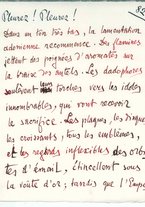 Pleurez ! Pleurez !
Dans un ton très bas, la lamentation
adonienne recommence. Des flamines
jettent des poignées d'aromates sur
la braise des autels. Les dadophores
soulèvent leurs torches vers les idoles
innombrables, qui vont recevoir
le sacrifice. Les plaques, les disques
les croissants, tous les emblèmes,
et les regards inflexibles des orbi-
tes d'émail, étincellent sous
la voûte d'or ; tandis que l'Empe